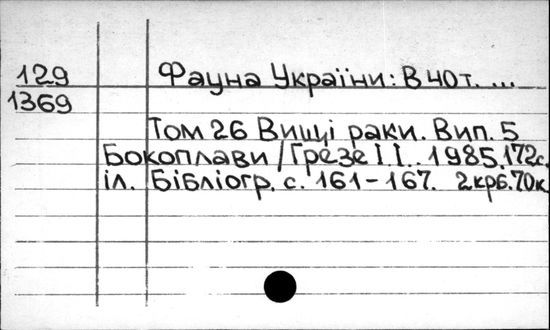 129 Фауна України: В 40 т. ...
1369
Том 26 Вищі раки. Вип. 5
Бокоплави / Грезе І. І.. 1985.172с.
іл. Бібліогр. с. 161-167. 2крб.70к